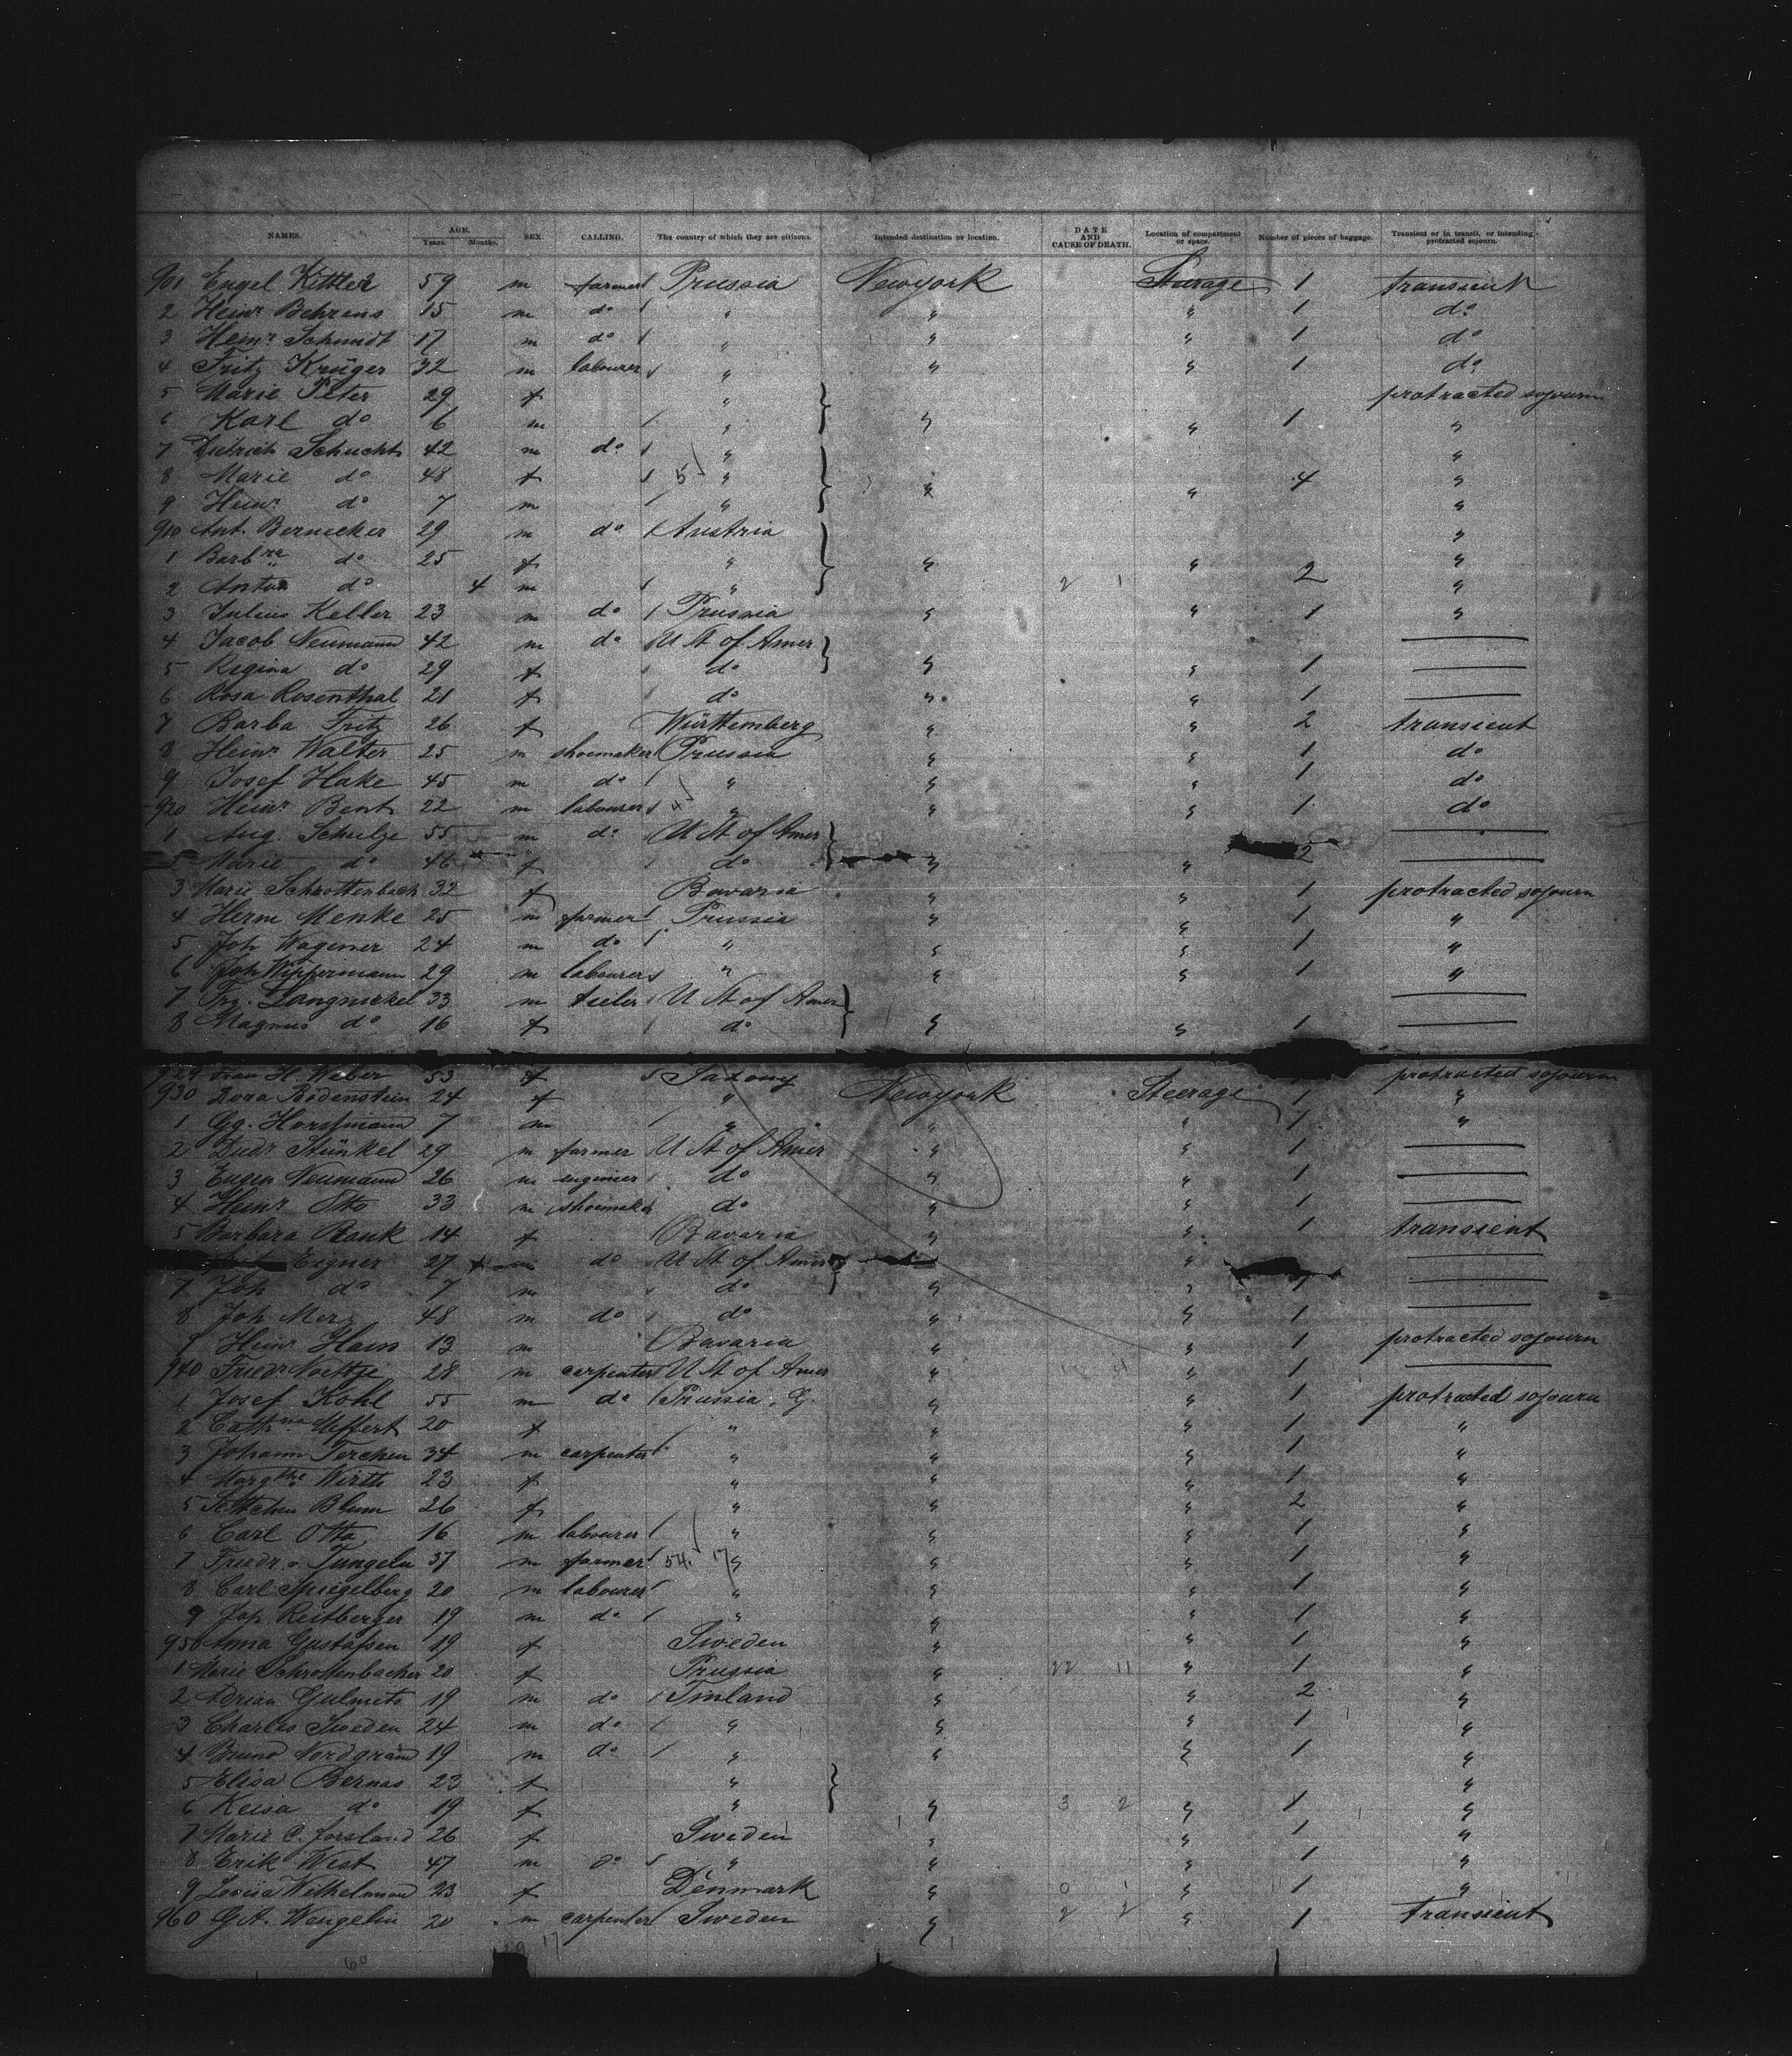 NAMES. AGE. Years. Months. SEX. CALLING. The country of which they are citizens. Intended destination or location. DATE AND CAUSE OF DEATH. Location of compartment or space. Number of pieces of baggage. Transient or in transit, or intending protracted sojourn.
901 Engel Kittler 59 m farmer Prussia Newyork Steerage 1 transient
2 Heinr Behrens 15 m do " " " 1 do
3 Heinr Schmidt 17 m do " " " 1 do
4 Fritz Krüger 32 m labourer " " " 1 do
5 Marie Peter 29 f " protracted sojourn
6 Karl do 6 m " " " 1 "
7 Dietrich Schucht 42 m do " "
8 Marie do 48 f 5 " " " 4 "
9 Heinr do 7 m " "
910 Ant. Bernecker 29 m do Austria "
1 Barbra do 25 f " " " 2 "
2 Anton do 4 m " 2 1 "
3 Julius Keller 23 m do Prussia " " 1 "
4 Jacob Neumann 42 m do U St of Amer
5 Regina do 29 f do " " 1
6 Rosa Rosenthal 21 f do " " 1
7 Barba Fritz 26 f Württemberg " " 2 transient
8 Heinr Walter 25 m shoemaker Prussia " " 1 do
9 Josef Hake 45 m do " " " 1 do
920 Heinr Bent 22 m labourer 4 " " " 1 do
1 Aug. Schulze 55 m do U St of Amer
2 Marie do 46 f do " " 2
3 Marie Schrottenbach 32 f Bavaria " " 1 protracted sojourn
4 Herm Menke 25 m farmer Prussia " " 1 "
5 Joh Wagener 24 m do " " " 1 "
6 Joh Wippermann 29 m labourer " " " 1 "
7 Frz. Langnickel 33 m U St of Amer
8 Magnus do 16 f do " " 1
929 H. Weber 53 f Saxony protracted sojourn
930 Dora Bödenstein 24 f " Newyork Steerage 1 "
1 Gg. Horstmann 7 m " " " 1 "
2 Stünkel 29 m farmer U St of Amer " " 1
3 Eugen Neumann 26 m engineer do " " 1
4 Heinr Otto 33 m shoemaker do " " 1
5 Barbara Bank 14 f Bavaria " " 1 transient
Eigner 27 m do U St of Amer "
7 Joh do 7 m do " " 1
8 Joh Merz 48 m do do " " 1
9 Heinr Hain 13 m Bavaria " " 1 protracted sojourn
940 Friedr Noettge 28 m carpenter U St of Amer " " 1
1 Josef Kohl 55 m do Prussia, G. " " 1 protracted sojourn
2 Cathna Uffert 20 f " " " 1 "
3 Johann Terchen 34 m carpenter " " " 1 "
4 Margthe Wirth 23 f " " " 1 "
5 Settchen Blum 26 f " " " 2 "
6 Carl Otto 16 m labourer " " " 1 "
7 Friedr v. Tungeln 37 m farmer 54 17 " " " 1 "
8 Carl Spiegelberg 20 m labourer " " " 1 "
9 Joh Reitberger 19 m do " " " 1 "
950 Anna Gustafsen 19 f Sweden " " 1 "
1 Marie Schrottenbacher 20 f Prussia " 22 11 " 1 "
2 Adrian Gulmets 19 m do Finland " " 2 "
3 Charles Sweden 24 m do " " " 1 "
4 Bruno Nordgram 19 m do " " " 1 "
5 Elisa Bernas 23 f " "
6 Keisa do 19 f " " 3 2 " 1 "
7 Marie C. Forsland 26 f Sweden " " 1 "
8 Erik West 47 m do " " " 1 "
9 Lovisa Wilhelmson 23 f Denmark " 0 1 " 1 "
960 G.A. Wengelin 20 m carpenter Sweden " 2 2 " 1 transient
60 17